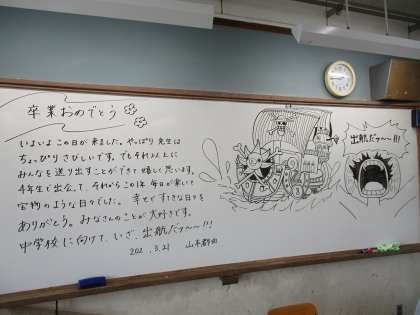 卒業おめでとう
いよいよこの日が来ました。やっぱり先生は
ちょっぴりさびしいです。でもそれ以上に
みんなを送り出すことができて嬉しく思います。
4年生で出会って、それからの
毎日が楽しくて
宝物のような日々でした。幸せですてきな日々を
ありがとう。みなさんのことが大好きです。
中学校に向けて、いざ、出航だァ〜〜!!!
3.21
山本
出航だァ〜〜!!!